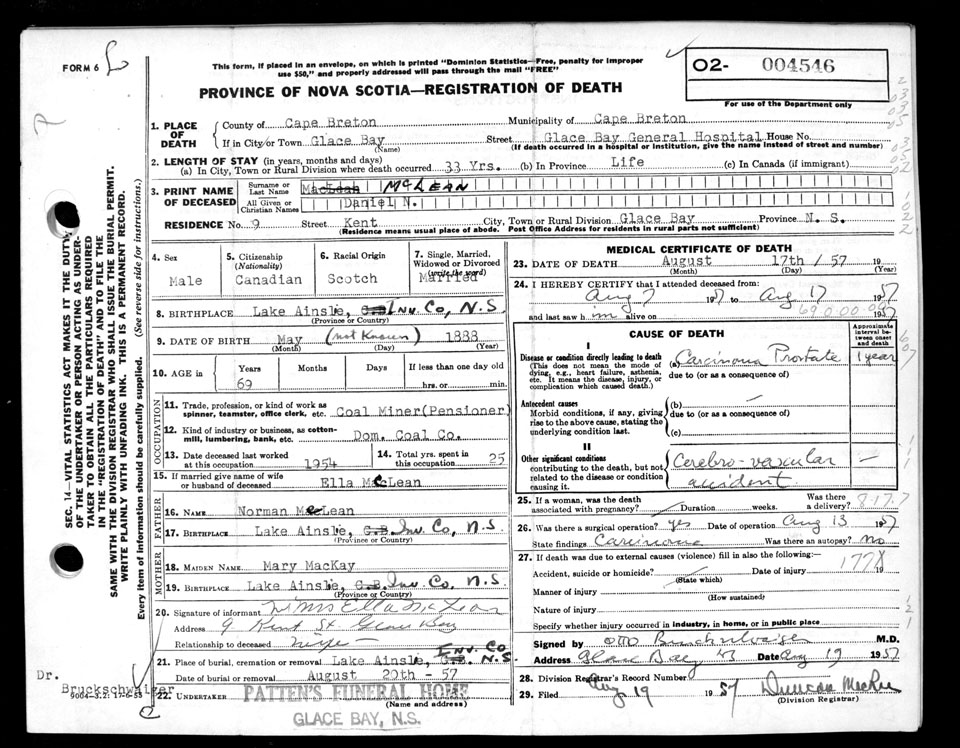 FORM 6
This form, if placed in an envelope, on which is printed "Dominion Statistics—Free, penalty for improper
use $50," and properly addressed will pass through the mail "FREE"
O2- 004546
For use of the Department only
PROVINCE OF NOVA SCOTIA—REGISTRATION OF DEATH
SEC. 14—VITAL STATISTICS ACT MAKES IT THE DUTY
OF THE UNDERTAKER OR PERSON ACTING AS UNDER-
TAKER TO OBTAIN ALL THE PARTICULARS REQUIRED
IN THE "REGISTRATION OF DEATH" AND TO FILE THE
SAME WITH THE DIVISION REGISTRAR WHO SHALL ISSUE THE BURIAL PERMIT.
WRITE PLAINLY WITH UNFADING INK. THIS IS A PERMANENT RECORD.
Every item of information should be carefully supplied. (See reverse side for instructions.)
1. PLACE OF DEATH
County of Cape Breton Municipality of Cape Breton
If in City or Town Glace Bay Street Glace Bay General Hospital House No.
(Name) (If death occurred in a hospital or institution, give the name instead of street and number)
2. LENGTH OF STAY (in years, months and days)
(a) In City, Town or Rural Division where death occurred 33 Yrs. (b) In Province Life (c) In Canada (if immigrant)
3. PRINT NAME OF DECEASED
Surname or Last Name MacLean McLEAN
All Given or Christian Names Daniel N.
RESIDENCE No. 9 Street Kent City, Town or Rural Division Glace Bay Province N. S.
(Residence means usual place of abode. Post Office Address for residents in rural parts not sufficient)
4. Sex
Male
5. Citizenship
(Nationality)
Canadian
6. Racial Origin
Scotch
7. Single, Married,
Widowed or Divorced
(write the word)
Married
8. BIRTHPLACE Lake Ainslé, C.B. Inv. Co, N.S
(Province or Country)
9. DATE OF BIRTH May (not known) 1888
(Month) (Day) (Year)
10. AGE in Years Months Days If less than one day old
69 hrs. or min.
OCCUPATION
11. Trade, profession, or kind of work as
spinner, teamster, office clerk, etc. Coal Miner(Pensioner)
12. Kind of industry or business, as cotton-
mill, lumbering, bank, etc. Dom. Coal Co.
13. Date deceased last worked
at this occupation 1954
14. Total yrs. spent in
this occupation 25
15. If married give name of wife
or husband of deceased Ella McLean
FATHER
16. NAME Norman McLean
17. BIRTHPLACE Lake Ainslé, C.B. Inv. Co, N.S.
(Province or Country)
MOTHER
18. MAIDEN NAME Mary MacKay
19. BIRTHPLACE Lake Ainslé, C.B. Inv. Co, N.S.
(Province or Country)
20. Signature of informant Mrs Ella McLean
Address 9 Kent St. Glace Bay
Relationship to deceased Wife
21. Place of burial, cremation or removal Lake Ainslé, C.B. Inv. Co N.S
Date of burial or removal August 20th - 57
22. UNDERTAKER PATTEN'S FUNERAL HOME
(Name and address)
GLACE BAY, N.S.
Dr.
Bruckschwaiger
MEDICAL CERTIFICATE OF DEATH
23. DATE OF DEATH August 17th / 57 19
(Month) (Day) (Year)
24. I HEREBY CERTIFY that I attended deceased from:
Aug 7 1957 to Aug 17 1957
and last saw him alive on 1957
CAUSE OF DEATH
Approximate
interval between
onset and death
I
Disease or condition directly leading to death
(This does not mean the mode of
dying, e.g., heart failure, asthenia,
etc. It means the disease, injury, or
complication which caused death.)
(a) Carcinoma Prostate 1 year
due to (or as a consequence of)
Antecedent causes
Morbid conditions, if any, giving
rise to the above cause, stating the
underlying condition last.
(b)
due to (or as a consequence of)
(c)
II
Other significant conditions
contributing to the death, but not
related to the disease or condition
causing it.
Cerebro-vascular —
accident
25. If a woman, was the death
associated with pregnancy? Duration weeks. Was there
a delivery?
26. Was there a surgical operation? yes Date of operation Aug 13 1957
State findings Carcinoma Was there an autopsy? No
27. If death was due to external causes (violence) fill in also the following:—
Accident, suicide or homicide? Date of injury 19
(State which)
Manner of injury
(How sustained)
Nature of injury
Specify whether injury occurred in industry, in home, or in public place
Signed by Otto Bruckschwaiger M.D.
Address Glace Bay NS Date Aug 19 1957
28. Division Registrar's Record Number
29. Filed Aug 19 1957 Duncan MacRae
(Division Registrar)